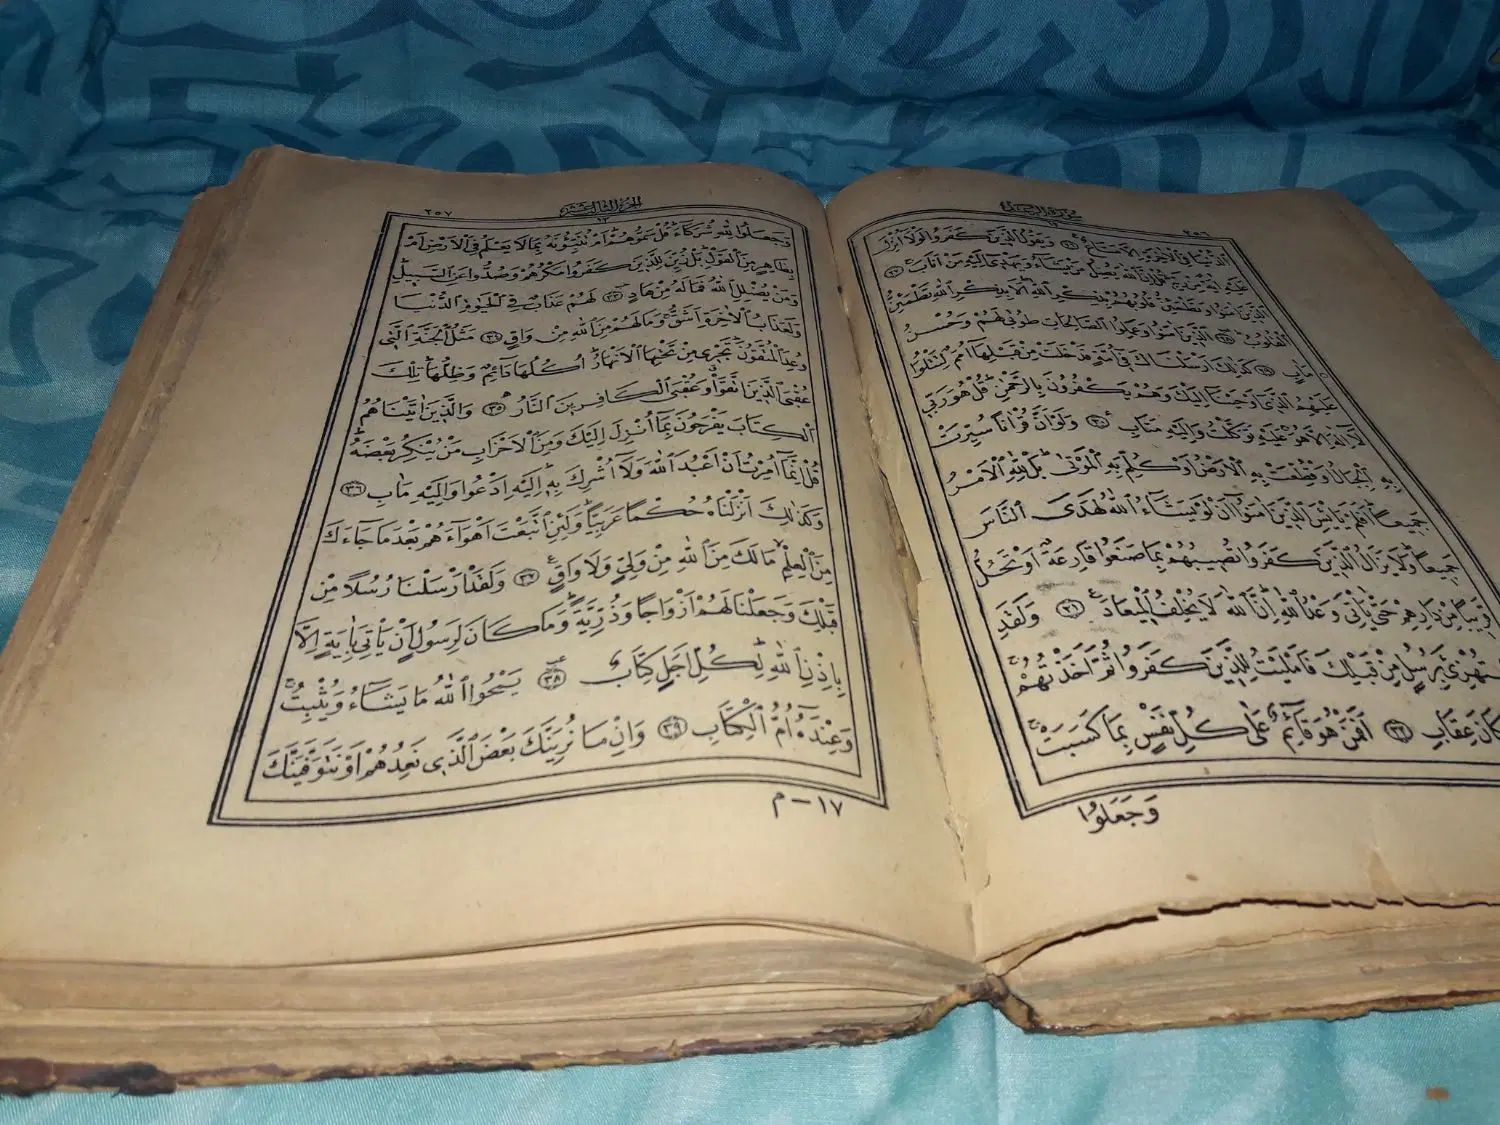 ٢٥٦
سورة الرعد
١٣
الدُّنْيَا فِي الْاٰخِرَةِ اِلَّا مَتَاعٌ ﴿٢٦﴾ وَيَقُولُ الَّذِينَ كَفَرُوا لَوْلَا اُنْزِلَ
عَلَيْهِ اٰيَةٌ مِنْ رَبِّهٖ قُلْ اِنَّ اللّٰهَ يُضِلُّ مَنْ يَشَاءُ وَيَهْدِي اِلَيْهِ مَنْ اَنَابَ ﴿٢٧﴾
اَلَّذِينَ اٰمَنُوا وَتَطْمَئِنُّ قُلُوبُهُمْ بِذِكْرِ اللّٰهِ اَلَا بِذِكْرِ اللّٰهِ تَطْمَئِنُّ
الْقُلُوبُ ﴿٢٨﴾ اَلَّذِينَ اٰمَنُوا وَعَمِلُوا الصَّالِحَاتِ طُوبٰى لَهُمْ وَحُسْنُ
مَاٰبٍ ﴿٢٩﴾ كَذٰلِكَ اَرْسَلْنَاكَ فِي اُمَّةٍ قَدْ خَلَتْ مِنْ قَبْلِهَا اُمَمٌ لِتَتْلُوَا
عَلَيْهِمُ الَّذِي اَوْحَيْنَا اِلَيْكَ وَهُمْ يَكْفُرُونَ بِالرَّحْمٰنِ قُلْ هُوَ رَبِّي
لَا اِلٰهَ اِلَّا هُوَ عَلَيْهِ تَوَكَّلْتُ وَاِلَيْهِ مَتَابِ ﴿٣٠﴾ وَلَوْ اَنَّ قُرْاٰنًا سُيِّرَتْ
بِهِ الْجِبَالُ اَوْ قُطِّعَتْ بِهِ الْاَرْضُ اَوْ كُلِّمَ بِهِ الْمَوْتٰى بَلْ لِلّٰهِ الْاَمْرُ
جَمِيعًا اَفَلَمْ يَايْـَٔسِ الَّذِينَ اٰمَنُوا اَنْ لَوْ يَشَاءُ اللّٰهُ لَهَدَى النَّاسَ
جَمِيعًا وَلَا يَزَالُ الَّذِينَ كَفَرُوا تُصِيبُهُمْ بِمَا صَنَعُوا قَارِعَةٌ اَوْ تَحُلُّ
قَرِيبًا مِنْ دَارِهِمْ حَتّٰى يَاْتِيَ وَعْدُ اللّٰهِ اِنَّ اللّٰهَ لَا يُخْلِفُ الْمِيعَادَ ﴿٣١﴾ وَلَقَدِ
اسْتُهْزِئَ بِرُسُلٍ مِنْ قَبْلِكَ فَاَمْلَيْتُ لِلَّذِينَ كَفَرُوا ثُمَّ اَخَذْتُهُمْ
كَانَ عِقَابِ ﴿٣٢﴾ اَفَمَنْ هُوَ قَائِمٌ عَلٰى كُلِّ نَفْسٍ بِمَا كَسَبَتْ
وَجَعَلُوا
٢٥٧
الجزء الثالث عشر
١٣
وَجَعَلُوا لِلّٰهِ شُرَكَاءَ قُلْ سَمُّوهُمْ اَمْ تُنَبِّئُونَهُ بِمَا لَا يَعْلَمُ فِي الْاَرْضِ اَمْ
بِظَاهِرٍ مِنَ الْقَوْلِ بَلْ زُيِّنَ لِلَّذِينَ كَفَرُوا مَكْرُهُمْ وَصُدُّوا عَنِ السَّبِيلِ
وَمَنْ يُضْلِلِ اللّٰهُ فَمَا لَهُ مِنْ هَادٍ ﴿٣٣﴾ لَهُمْ عَذَابٌ فِي الْحَيٰوةِ الدُّنْيَا
وَلَعَذَابُ الْاٰخِرَةِ اَشَقُّ وَمَا لَهُمْ مِنَ اللّٰهِ مِنْ وَاقٍ ﴿٣٤﴾ مَثَلُ الْجَنَّةِ الَّتِي
وُعِدَ الْمُتَّقُونَ تَجْرِي مِنْ تَحْتِهَا الْاَنْهَارُ اُكُلُهَا دَائِمٌ وَظِلُّهَا تِلْكَ
عُقْبَى الَّذِينَ اتَّقَوْا وَعُقْبَى الْكَافِرِينَ النَّارُ ﴿٣٥﴾ وَالَّذِينَ اٰتَيْنَاهُمُ
الْكِتَابَ يَفْرَحُونَ بِمَا اُنْزِلَ اِلَيْكَ وَمِنَ الْاَحْزَابِ مَنْ يُنْكِرُ بَعْضَهُ
قُلْ اِنَّمَا اُمِرْتُ اَنْ اَعْبُدَ اللّٰهَ وَلَا اُشْرِكَ بِهِ اِلَيْهِ اَدْعُوا وَاِلَيْهِ مَاٰبِ ﴿٣٦﴾
وَكَذٰلِكَ اَنْزَلْنَاهُ حُكْمًا عَرَبِيًّا وَلَئِنِ اتَّبَعْتَ اَهْوَاءَهُمْ بَعْدَ مَا جَاءَكَ
مِنَ الْعِلْمِ مَا لَكَ مِنَ اللّٰهِ مِنْ وَلِيٍّ وَلَا وَاقٍ ﴿٣٧﴾ وَلَقَدْ اَرْسَلْنَا رُسُلًا مِنْ
قَبْلِكَ وَجَعَلْنَا لَهُمْ اَزْوَاجًا وَذُرِّيَّةً وَمَا كَانَ لِرَسُولٍ اَنْ يَاْتِيَ بِاٰيَةٍ اِلَّا
بِاِذْنِ اللّٰهِ لِكُلِّ اَجَلٍ كِتَابٌ ﴿٣٨﴾ يَمْحُوا اللّٰهُ مَا يَشَاءُ وَيُثْبِتُ
وَعِنْدَهُ اُمُّ الْكِتَابِ ﴿٣٩﴾ وَاِنْ مَا نُرِيَنَّكَ بَعْضَ الَّذِي نَعِدُهُمْ اَوْ نَتَوَفَّيَنَّكَ
١٧ — م